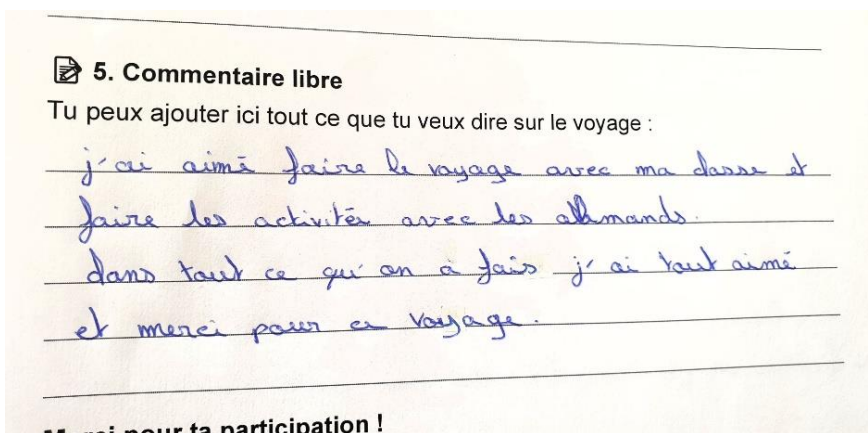 5. Commentaire libre
Tu peux ajouter ici tout ce que tu veux dire sur le voyage :
j'ai aimé faire le voyage avec ma classe et
faire les activités avec les allmands.
dans tout ce qu'on à fais j'ai tout aimé
et merci pour ce voyage.
Merci pour ta participation !